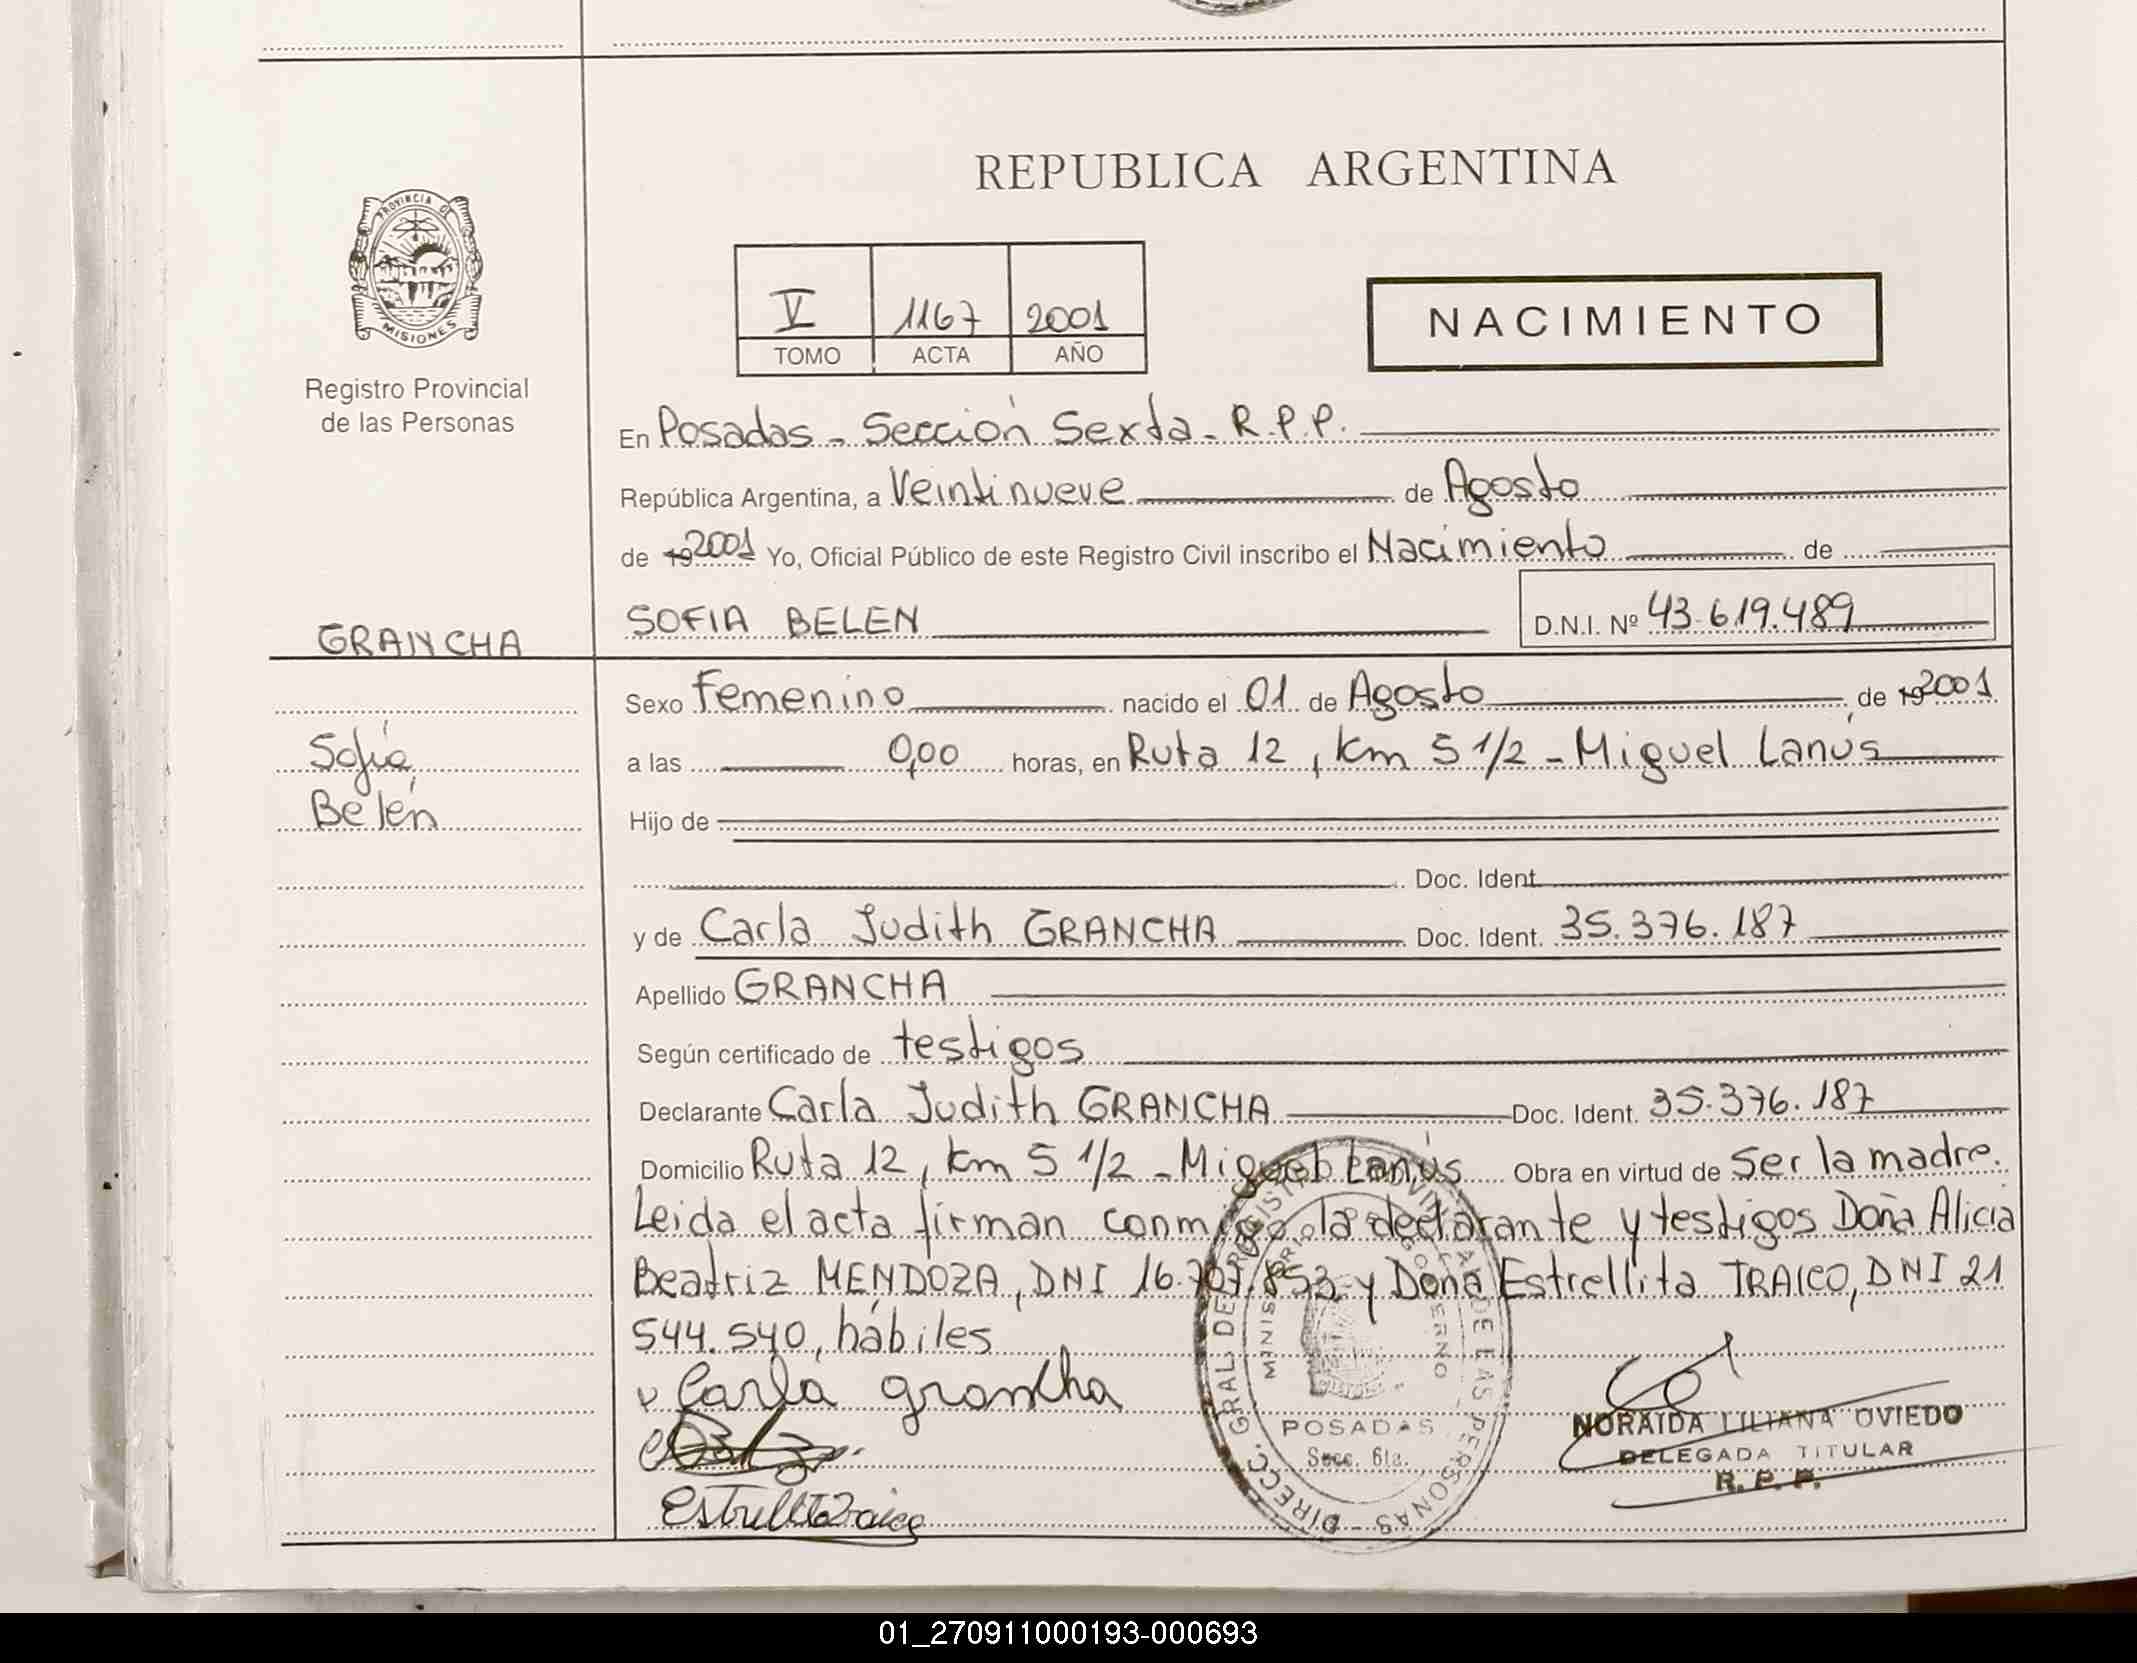 REPUBLICA ARGENTINA
PROVINCIA DE
MISIONES
Registro Provincial
de las Personas
V 1167 2001
TOMO ACTA AÑO
NACIMIENTO
En Posadas - Sección Sexta - R.P.P.
República Argentina, a Veintinueve de Agosto
de 19 2001 Yo, Oficial Público de este Registro Civil inscribo el Nacimiento de
GRANCHA
SOFIA BELEN D.N.I. Nº 43.619.489
Sexo Femenino nacido el 01 de Agosto de 19 2001
Sofía
Belén
a las 0,00 horas, en Ruta 12, km 5 1/2 - Miguel Lanús
Hijo de
Doc. Ident.
y de Carla Judith GRANCHA Doc. Ident. 35.376.187
Apellido GRANCHA
Según certificado de testigos
Declarante Carla Judith GRANCHA Doc. Ident. 35.376.187
Domicilio Ruta 12, km 5 1/2 - Miguel Lanús Obra en virtud de Ser la madre.
Leida el acta firman conmigo la declarante y testigos Doña Alicia
Beatriz MENDOZA, DNI 16.707.853 y Doña Estrellita TRAICO, DNI 21
544.540, hábiles
Carla grancha
DIRECC. GRAL. DE REGISTRO PROVINCIAL DE LAS PERSONAS
MINISTERIO DE GOBIERNO
POSADAS
Secc. 6ta.
NORAIDA LILIANA OVIEDO
DELEGADA TITULAR
R. P. P.
01_270911000193-000693